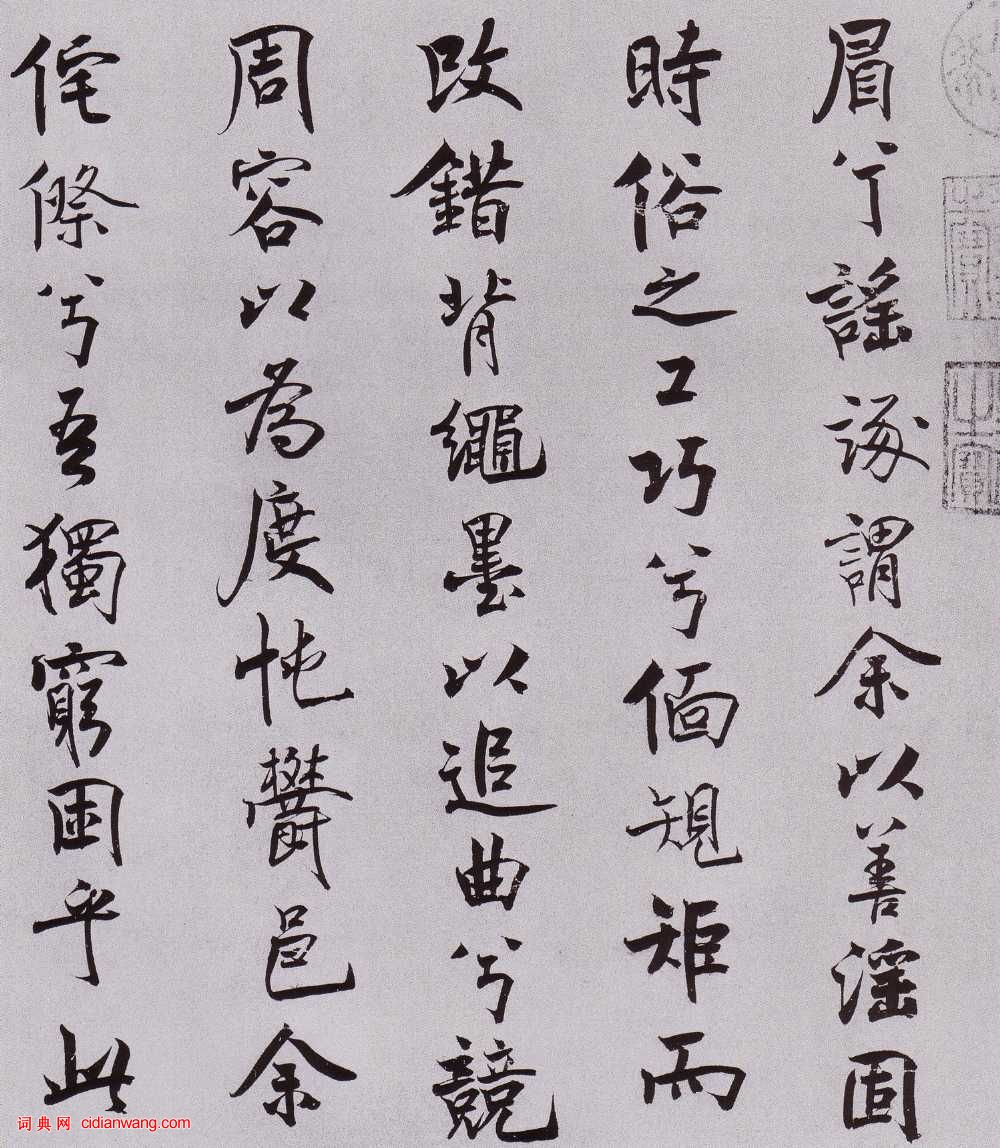 眉兮謡諑謂余以善滛固
時俗之工巧兮偭規矩而
改錯背繩墨以追曲兮競
周容以為度忳鬱邑余
侘傺兮吾獨窮困乎此
词典网 cidianwang.com